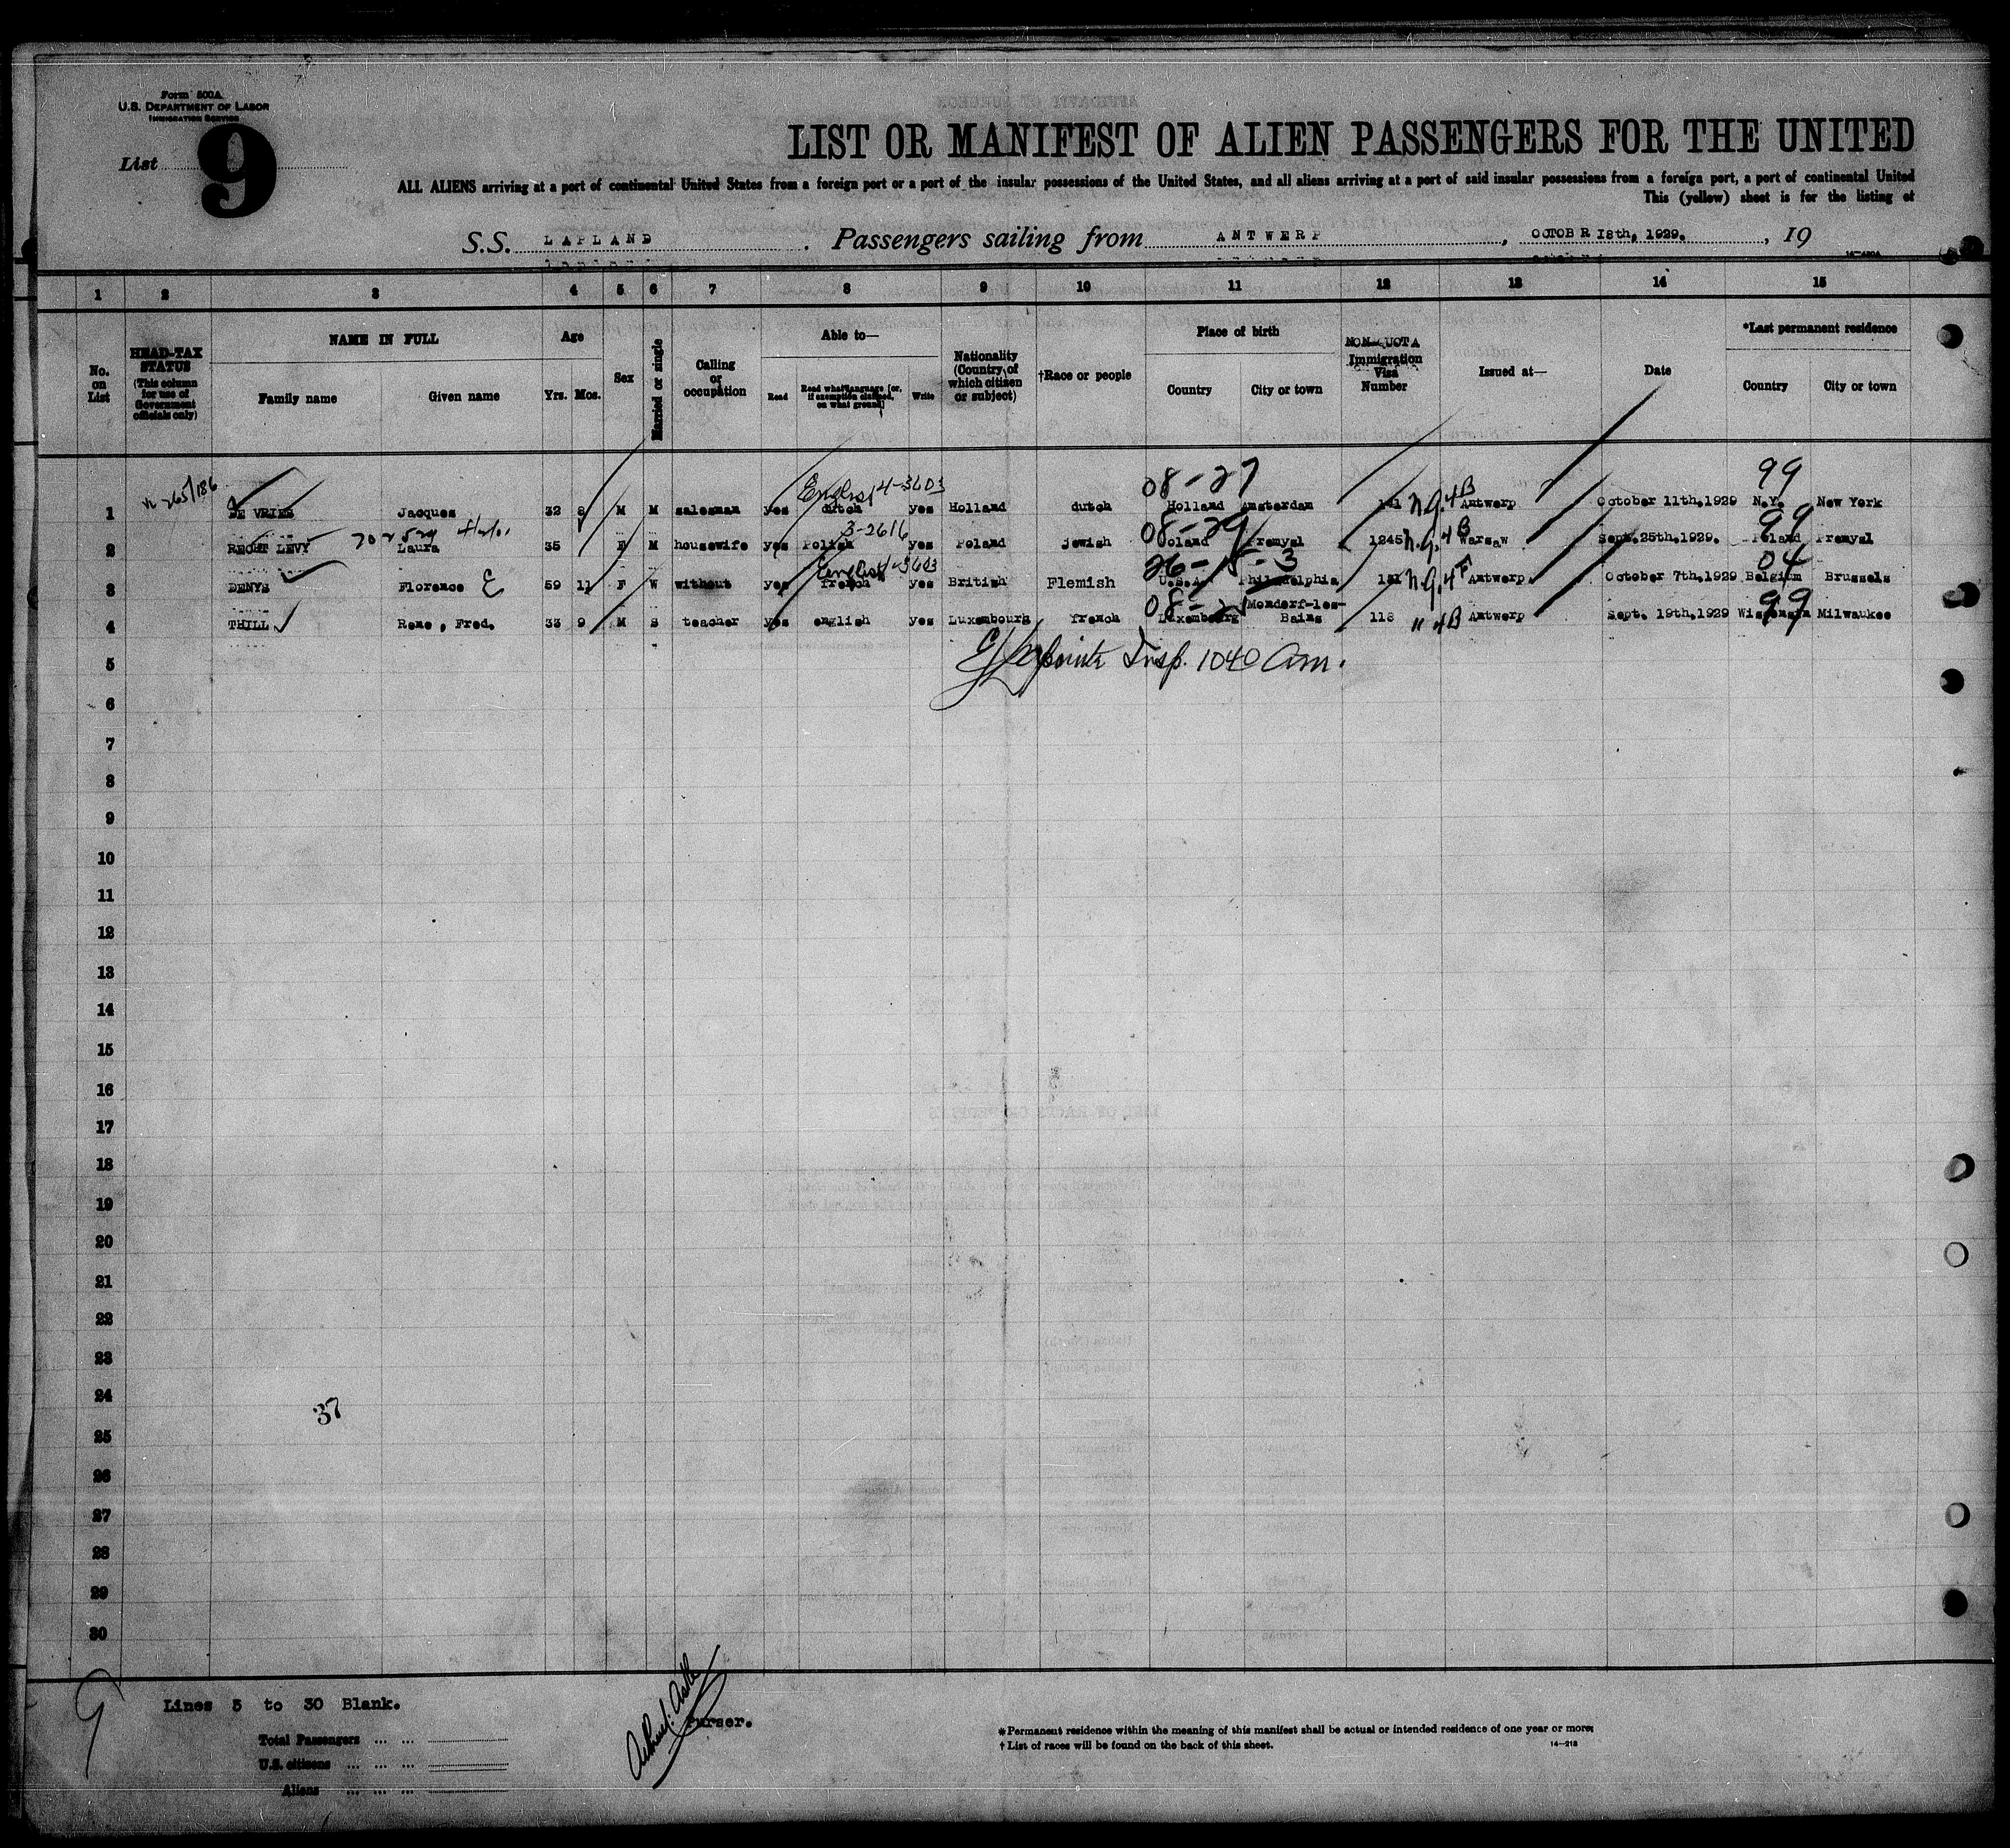 Form 500A
U.S. DEPARTMENT OF LABOR
IMMIGRATION SERVICE
List 9
LIST OR MANIFEST OF ALIEN PASSENGERS FOR THE UNITED
ALL ALIENS arriving at a port of continental United States from a foreign port or a port of the insular possessions of the United States, and all aliens arriving at a port of said insular possessions from a foreign port, a port of continental United
This (yellow) sheet is for the listing of
S.S. LAPLAND . Passengers sailing from ANTWERP , OCTOB R 18th, 1929. , 19
1 2 3 4 5 6 7 8 9 10 11 12 13 14 15
No. on List
HEAD-TAX STATUS (This column for use of Government officials only)
NAME IN FULL
Family name Given name
Age
Yrs. Mos.
Sex
Married or single
Calling or occupation
Able to—
Read Read what language [or, if exemption claimed, on what ground] Write
Nationality (Country of which citizen or subject)
†Race or people
Place of birth
Country City or town
NON-QUOTA Immigration Visa Number
Issued at—
Date
*Last permanent residence
Country City or town
English 4-3603 08-27 99
1 DE VRIES Jacques 32 8 M M salesman yes dutch yes Holland dutch Holland Amsterdam 141 N.Q. 4B Antwerp October 11th,1929 N.Y. New York
3-2616 08-29 99
2 RECHT LEVY Laura 35 F M housewife yes Polish yes Poland jewish Poland Premysl 1245 N.Q. 4B Warsaw Sept.25th.1929. Poland Premysl
English 4-3603 04
3 DENYS Florence 59 11 F W without yes french yes British Flemish U.S.A. Philadelphia 151 N.Q. 4F Antwerp. October 7th.1929 Belgium Brussels
99
4 THILL Rene , Fred. 33 9 M S teacher yes english yes Luxembourg french Luxembourg Mondorf-les-Bains 118 " 4B Antwerp Sept. 19th.1929 Wisconsin Milwaukee
5 Insp. 1040 am.
6
7
8
9
10
11
12
13
14
15
16
17
18
19
20
21
22
23
24
37
25
26
27
28
29
30
9
Lines 5 to 30 Blank.
Purser.
Total Passengers ... ...
U.S. citizens ... ... ...
Aliens ... ... ...
* Permanent residence within the meaning of this manifest shall be actual or intended residence of one year or more.
† List of races will be found on the back of this sheet.
14—218